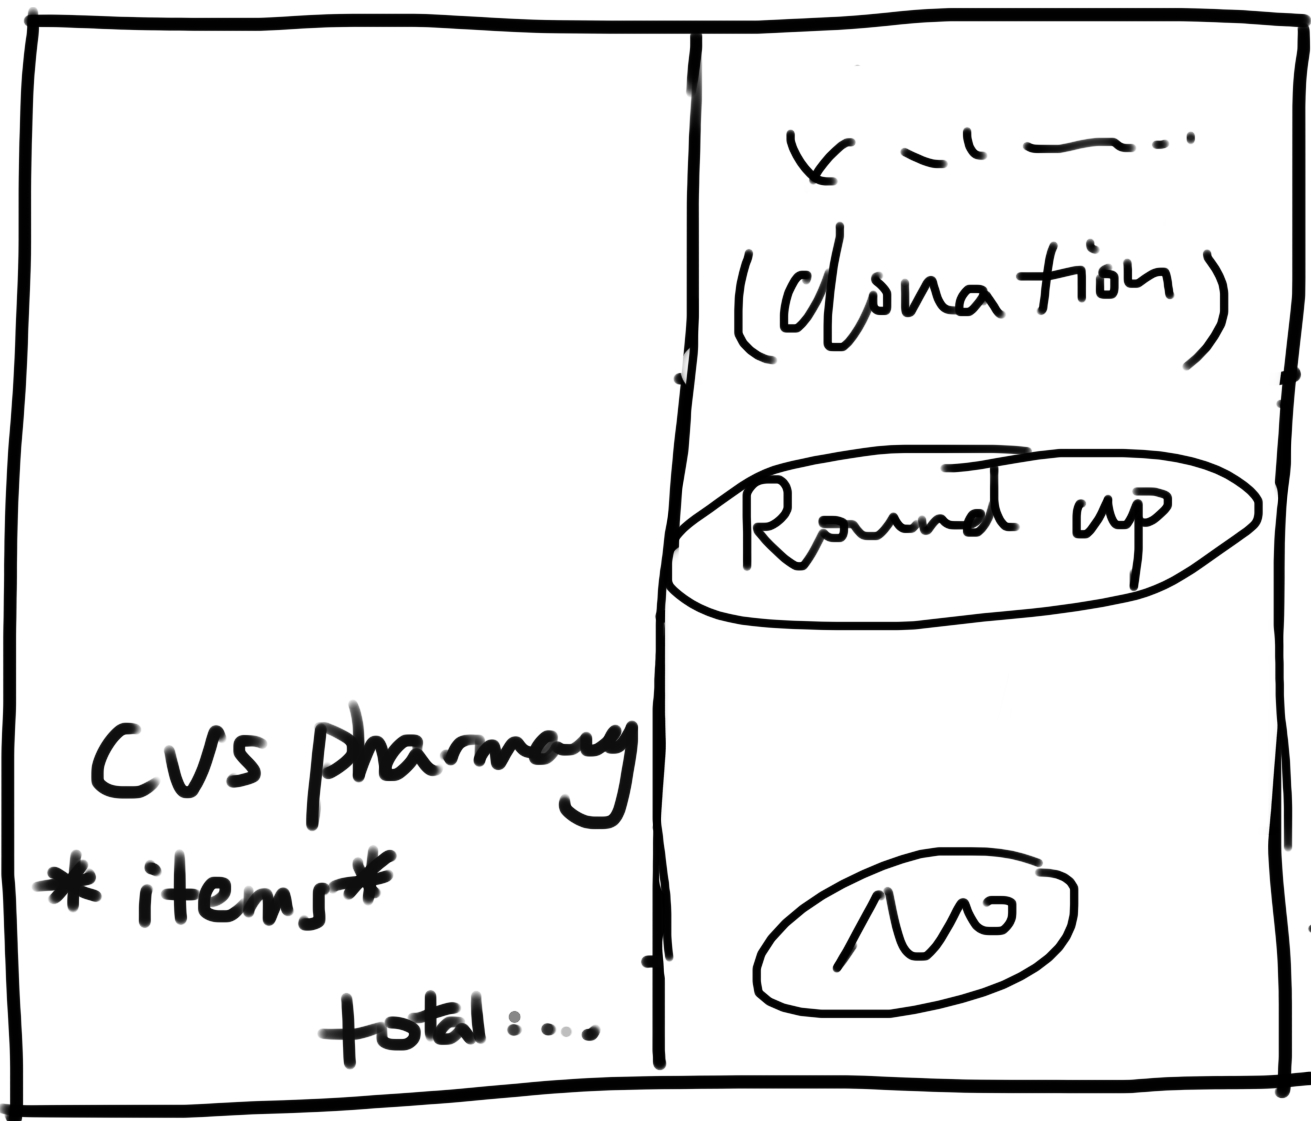 CVS pharmacy
* items *
total : ...
(donation)
Round up
No